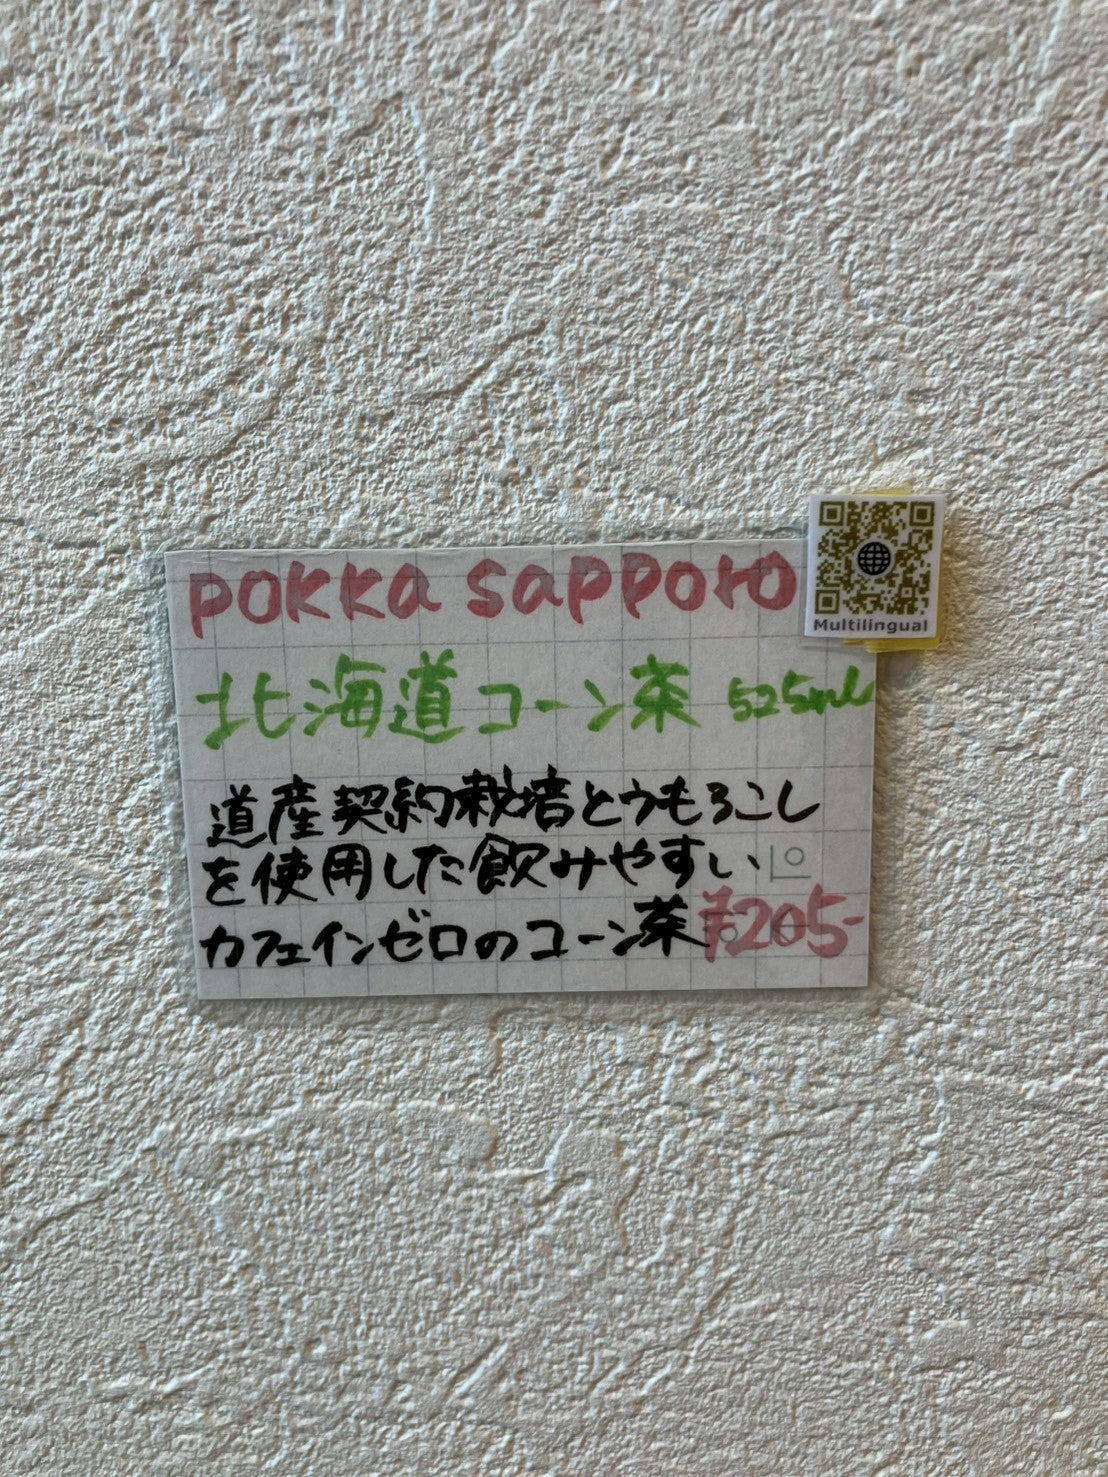 POKKA SAPPORO
Multilingual
北海道コーン茶 525ml
道産契約栽培とうもろこし
を使用した飲みやすい
カフェインゼロのコーン茶 ¥205-